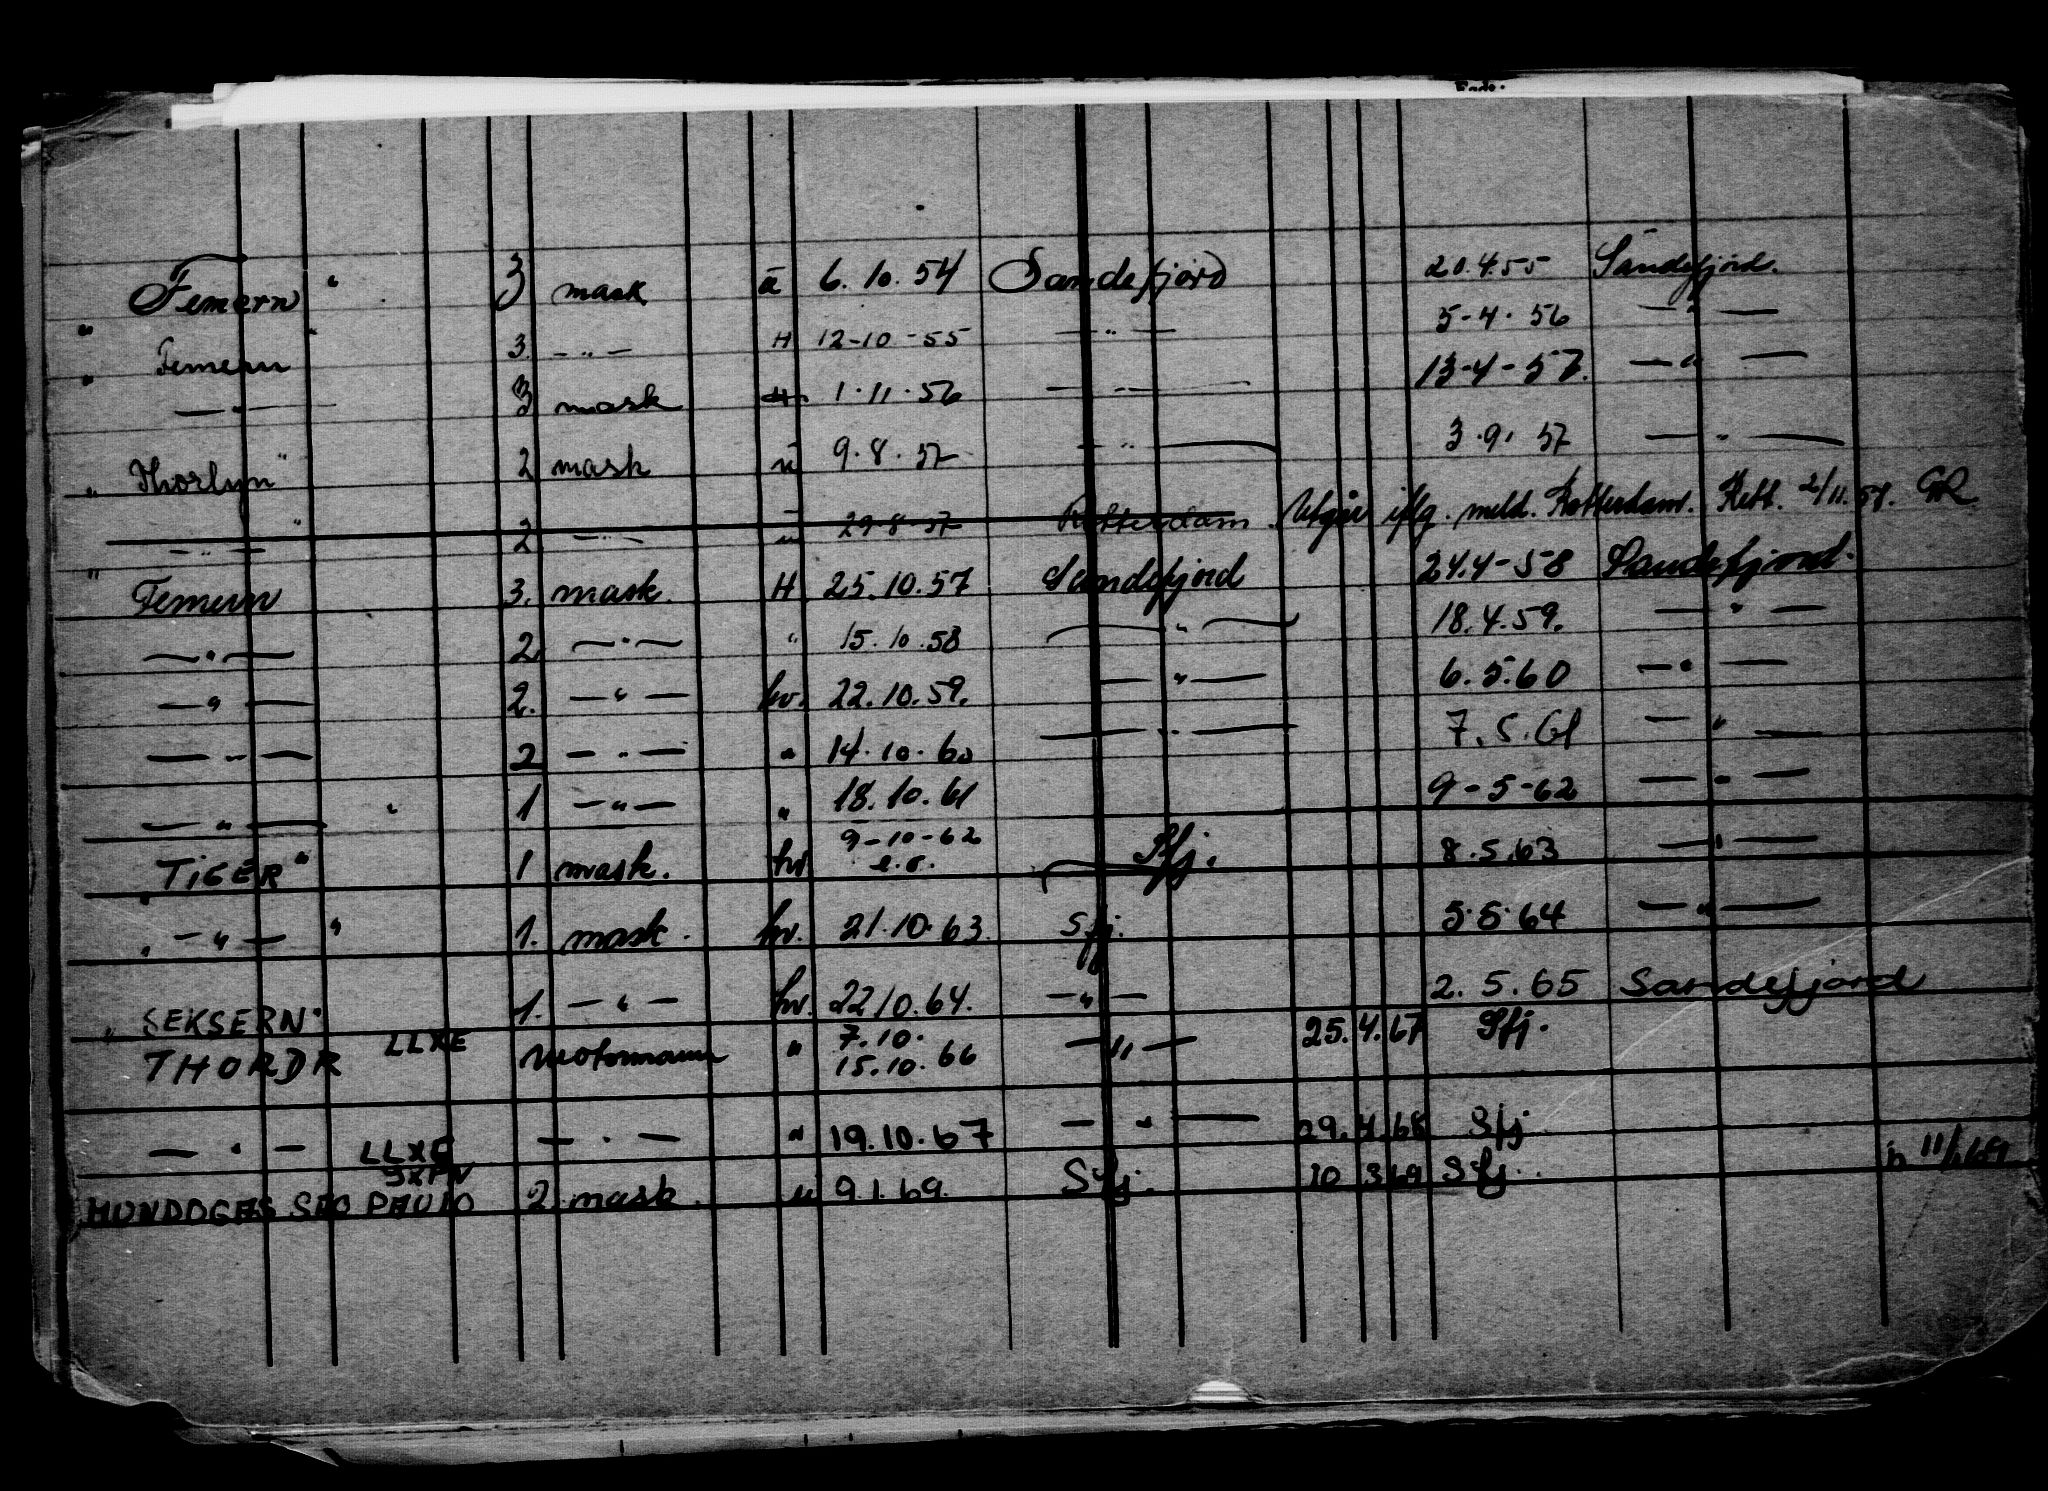 Femern " 3 mask ū 6.10.54 Sandefjord 20.4.55 Sandefjord.
" Femern " 3 — " — H 12-10-55 — " — 5-4.56 — " —
" — " — 3 mask H 1.11.56 — " — 13-4-57. — " —
" Thorlyn " 2 mask u 9.8.57 — " — 3.9.57 — " —
— " — " 2 — " — u 29-8-57 Rotterdam. Utgår iflg. meld. Rotterdam. Rett. 2/11.57. GR
" Femern 3. mask. H 25.10.57 Sandefjord 24.4-58 Sandefjord.
— " — 2 — " — " 15.10.58 — " — 18.4.59. — " —
— " — 2. — " — hv. 22.10.59. — " — 6.5.60 — " —
— " — 2 — " — " 14.10.60 — " — 7.5.61 — " —
— " — " 1 — " — " 18.10.61 9-5-62 — " —
" TIGER " 1 mask. hv 9-10-62 Sfj. 8.5.63 — " —
" — " — " 1. mask. hv. 21.10.63. Sfj. 5.5.64 — " —
" SEKSERN " 1. — " — hv. 22/10.64. — " — 2.5.65 Sandefjord
THORDR LLXE motormann " 7.10. 15.10.66 — " — 25.4.67 Sfj.
— " — LLXE — " — " 19.10.67 — " — 29.4.68 Sfj
2 mask. u 9.1.69. Sfj. 10 3 69 Sfj.